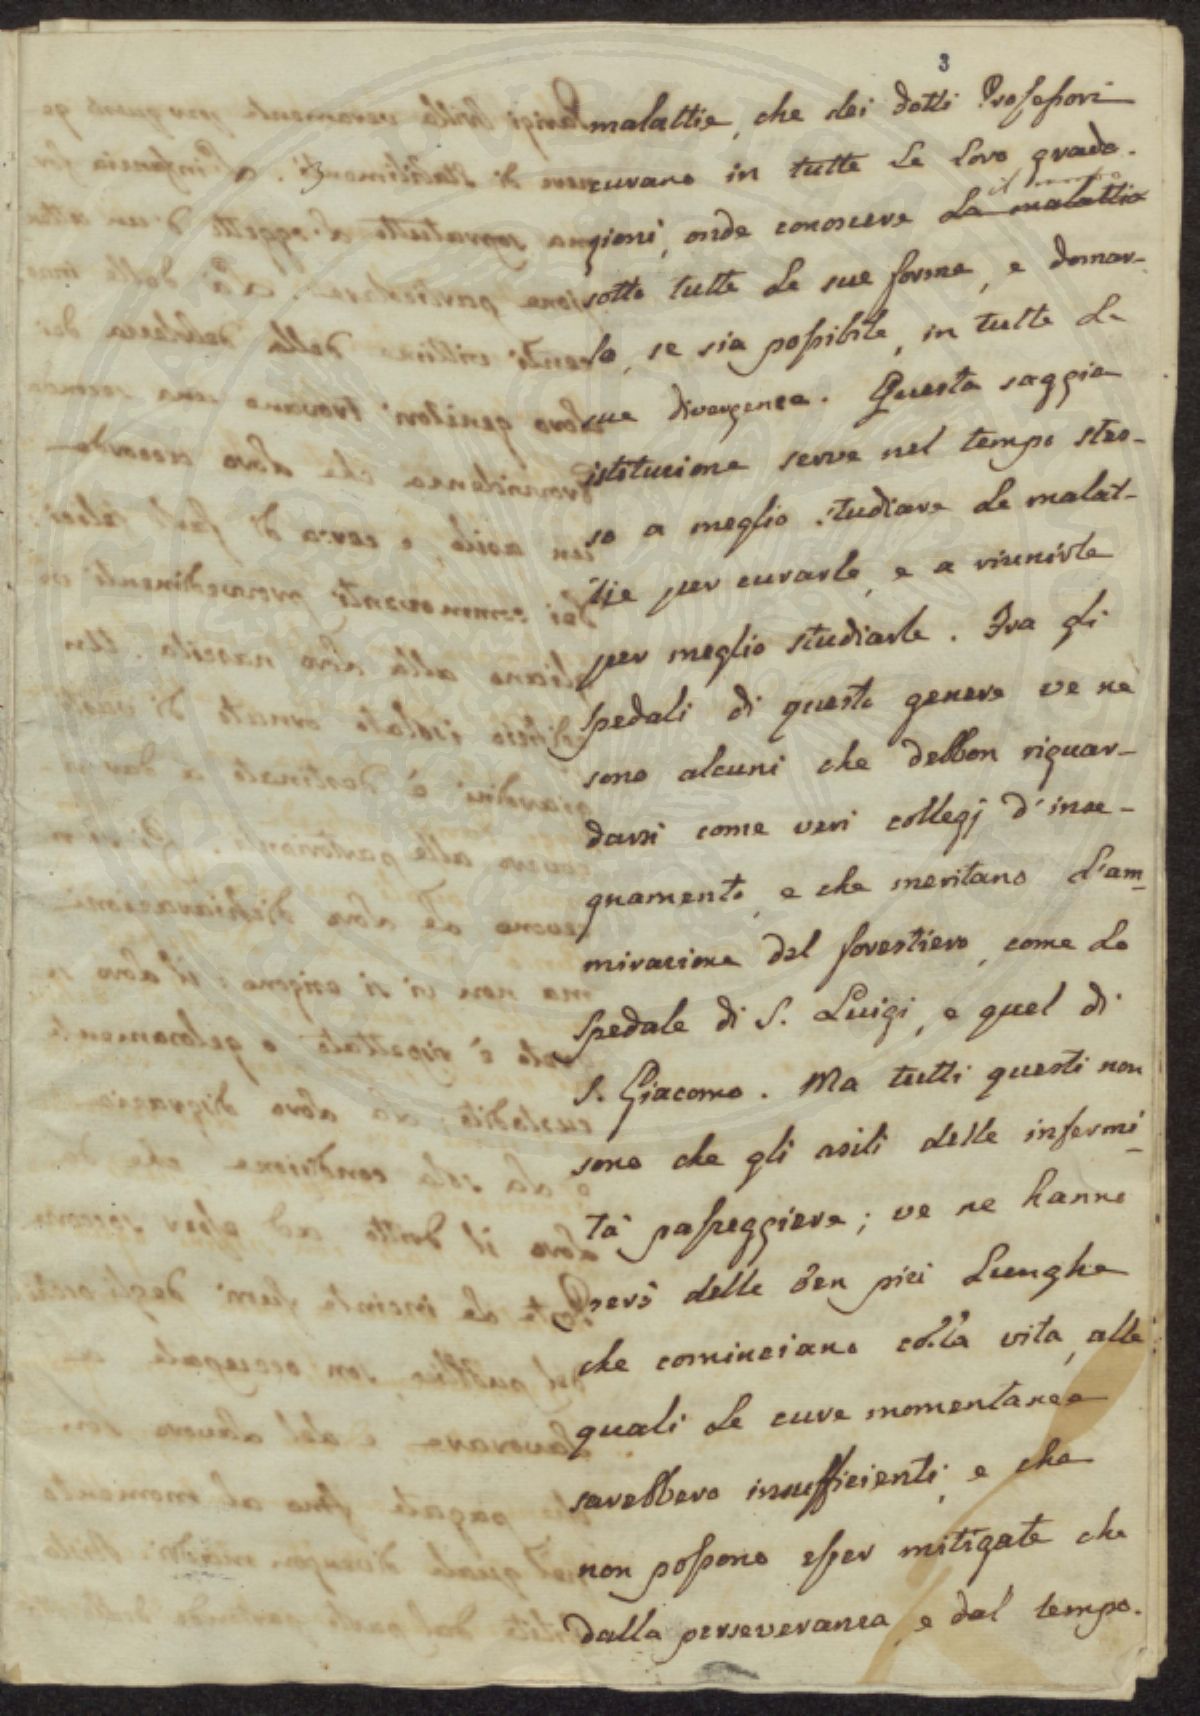 3
malattie, che dei dotti Professori
curano in tutte le loro grada-
il morbo
zioni, onde conoscere la malattia
sotto tutte le sue forme, e domar-
lo, se sia possibile, in tutte le
sue divergenze. Questa saggia
istituzione serve nel tempo stes-
so a meglio studiare le malat-
tie per curarle, e a riunirle
per meglio studiarle. Fra gli
spedali di questo genere ve ne
sono alcuni che debbon riguar-
darsi come veri collegj d'inse-
gnamento, e che meritano l'am-
mirazione del forestiero, come lo
spedale di S. Luigi, e quel di
S. Giacomo. Ma tutti questi non
sono che gli asili delle infermi-
tà passeggiere; ve ne hanno
però delle ben più lunghe
che cominciano colla vita, alle
quali le cure momentanee
sarebbero insufficienti, e che
non possono esser mitigate che
dalla perseveranza, e dal tempo.